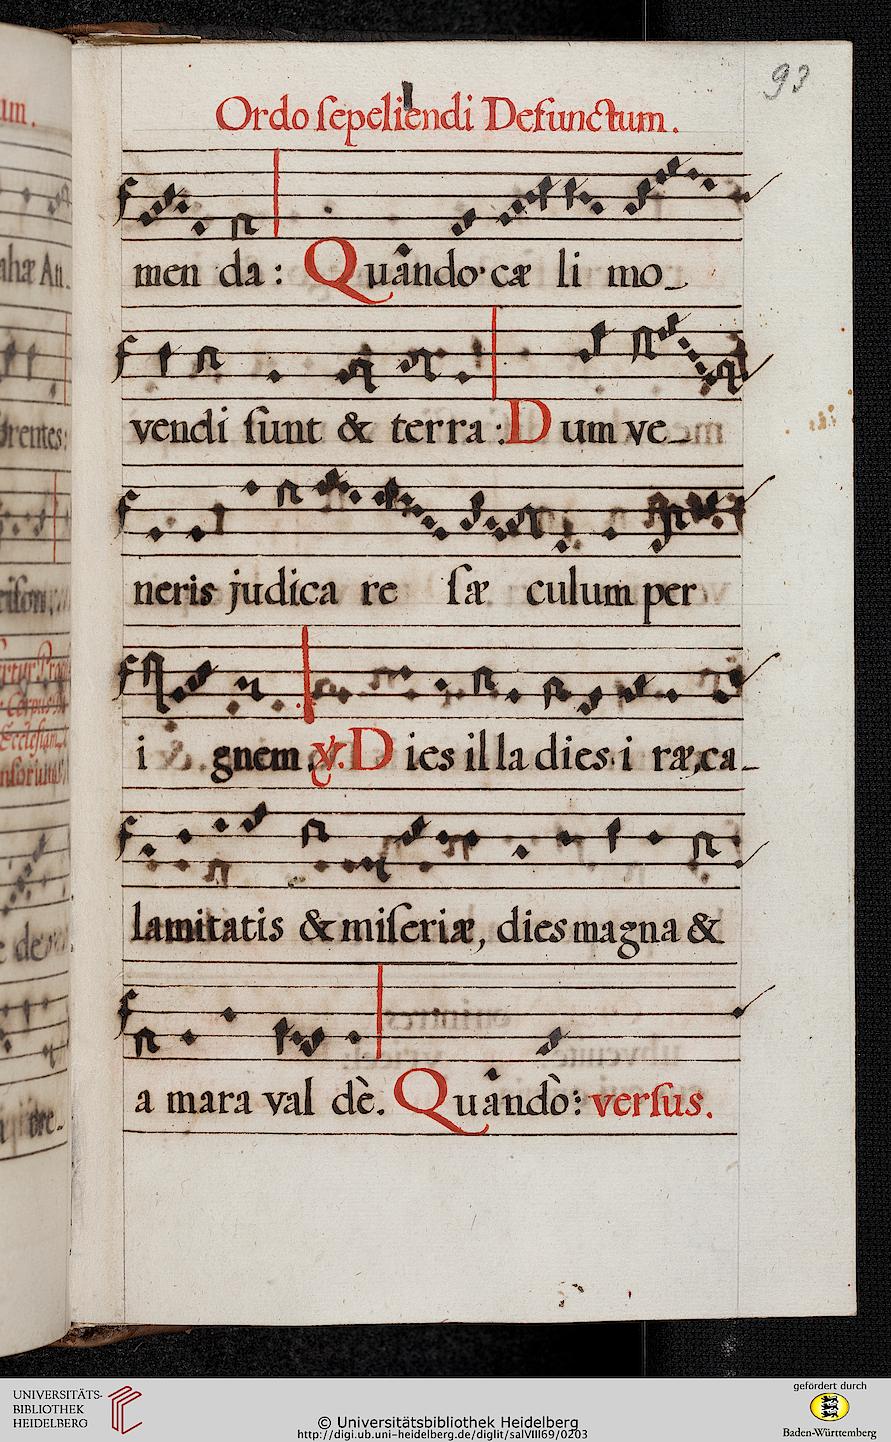 93
Ordo ſepeliendi Defunctum.
men da: Quando cæ li mo_
vendi ſunt & terra: Dum ve_
neris judica re ſæ culum per
i gnem ℣. Dies illa dies i ræ, ca_
lamitatis & miſeriæ, dies magna &
a mara val dè. Quandò: verſus.
UNIVERSITÄTS-
BIBLIOTHEK
HEIDELBERG
© Universitätsbibliothek Heidelberg
http://digi.ub.uni-heidelberg.de/diglit/salVIII69/0203
gefördert durch
Baden-Württemberg